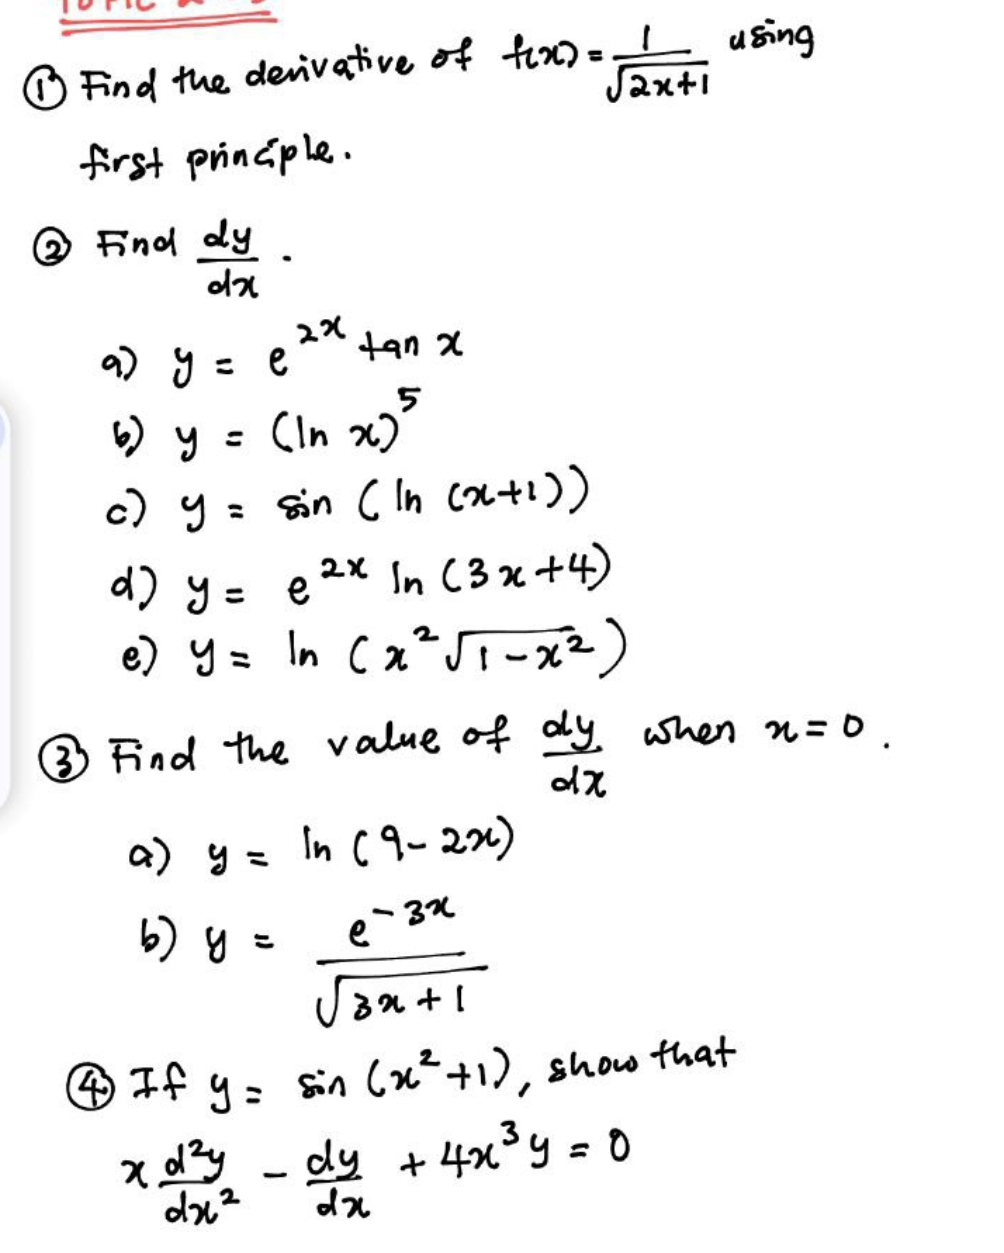 ① Find the derivative of f(x) = 1/√(2x+1) using
first principle.
② Find dy/dx .
a) y = e^(2x) tan x
b) y = (ln x)^5
c) y = sin ( ln (x+1))
d) y = e^(2x) ln (3x+4)
e) y = ln (x²√(1-x²))
③ Find the value of dy/dx when x = 0 .
a) y = ln (9-2x)
b) y = e^(-3x)/√(3x+1)
④ If y = sin (x²+1), show that
x d²y/dx² - dy/dx + 4x³y = 0